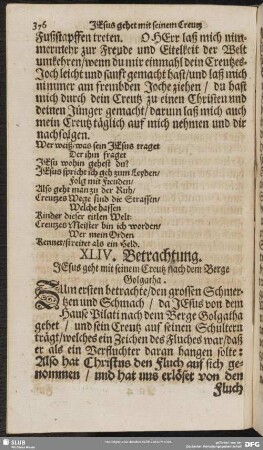 376 JEsus gehet mit seinem Creutz
Fußstapffen treten. O HErr laß mich nim-
mermehr zur Freude und Eitelkeit der Welt
umkehren/ wenn du mir einmahl dein Creutzes-
Joch leicht und sanft gemacht hast/ und laß mich
nimmer am frembden Joche ziehen / du hast
mich durch dein Creutz zu einen Christen und
deinen Jünger gemacht/ darum laß mich auch
mein Creutz täglich auf mich nehmen und dir
nachfolgen.
Wer weiß/ was sein JEsus traget
Der ihn fraget
JEsu wohin gehest du?
JEsus spricht ich geh zum Leyden/
Folg mit Freuden/
Also geht man zu der Ruh/
Creutzes Wege sind die Strassen/
Welche hassen
Kinder dieser eitlen Welt:
Creutzes Meister bin ich worden/
Wer mein Orden
Kennet/ streitet als ein Held.
XLIV. Betrachtung.
JEsus geht mit seinem Creutz nach dem Berge
Golgatha.
Zum ersten betrachte/ den grossen Schmer-
tzen und Schmach / da JEsus von dem
Hauß Pilati nach dem Berge Golgatha
gehet / und sein Creutz auf seinen Schultern
trägt/ welches ein Zeichen des Fluches war/ daß
er als ein Verfluchter daran hangen solte:
Also hat Christus den Fluch auf sich ge-
nommen / und hat uns erlöset von den
Fluch
SLUB
DFG